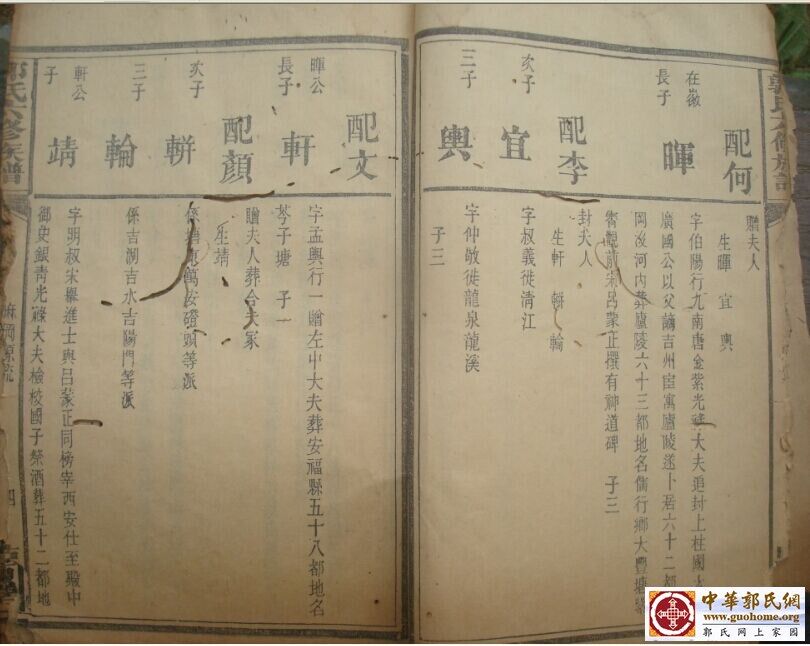 郭氏六修族譜
配何
贈夫人
生暉 宜 輿
在徽
長子
暉
字伯陽行九南唐金紫光祿大夫追封上柱國
廣國公以父謫吉州宦寓廬陵遂卜居六十二都
岡汝河內葬廬陵六十三都地名儒行鄉大豐塘
觀前宋呂蒙正撰有神道碑 子三
配李
封夫人
生軒 輧 輪
次子
宜
字叔義徙清江
三子
輿
字仲敬徙龍泉龍溪
子三
配文
暉公
長子
軒
字孟輿行一贈左中大夫葬安福縣五十八都地名
芩子塘 子一
配顏
贈夫人葬合夫冢
生靖
次子
輧
係 萬安磴頭等派
三子
輪
係吉澗吉水吉陽門等派
軒公
子
靖
字明叔宋舉進士與呂蒙正同榜宰西安仕至殿中
御史銀青光祿大夫檢校國子祭酒葬五十二都地
郭氏六修族譜
麻岡源流
四
中華郭氏網
www.guohome.org
郭氏网上家园